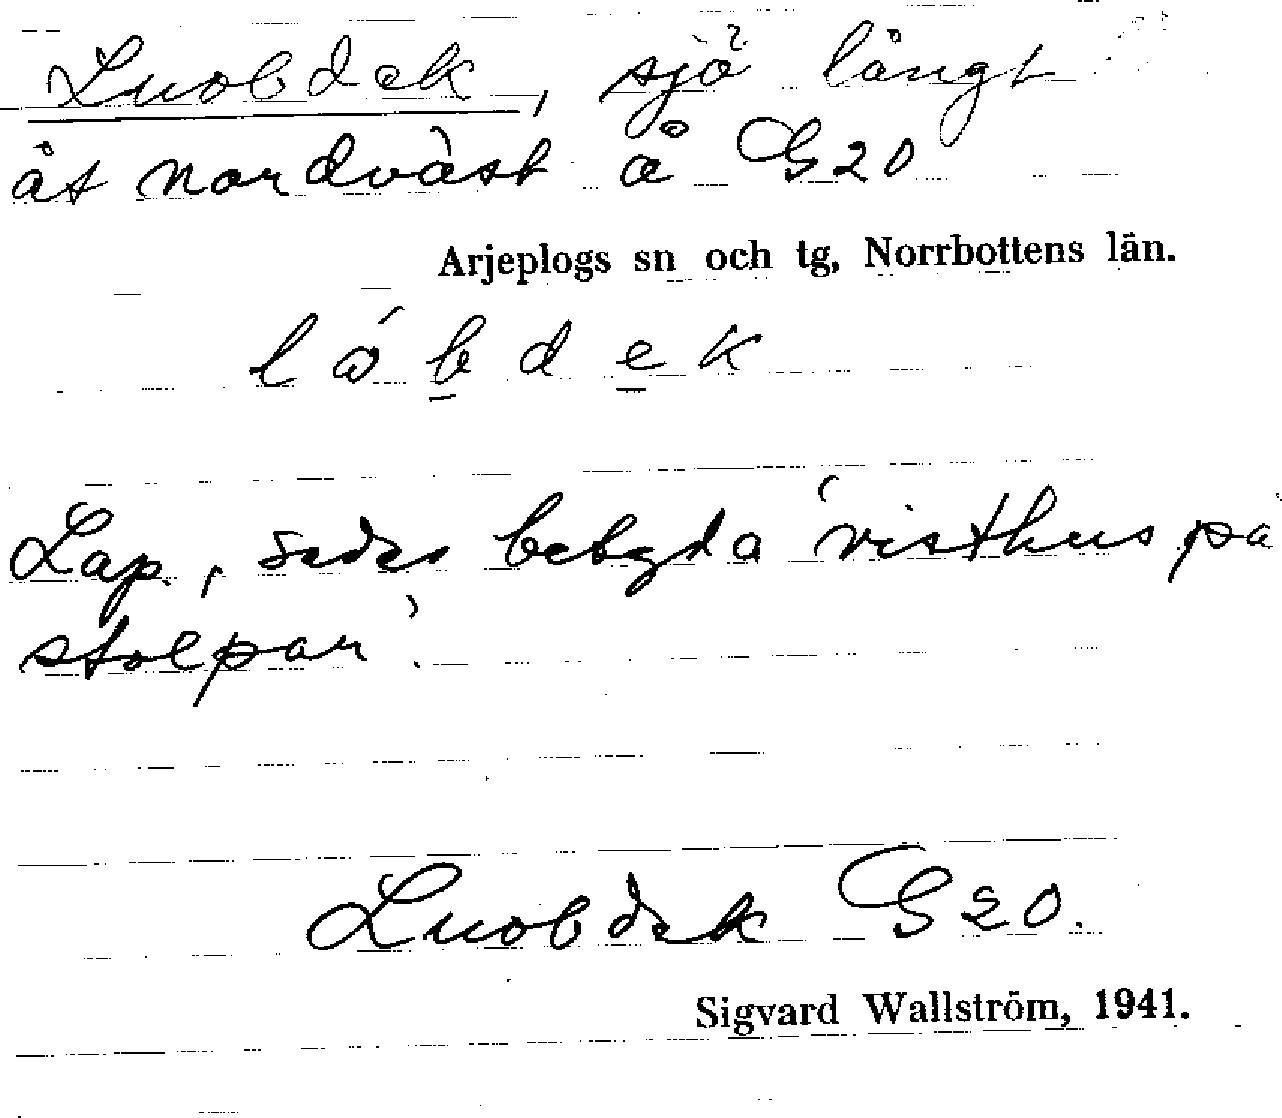 Luobdek, sjö långt
åt nordväst å G20
Arjeplogs sn och tg, Norrbottens län.
Lap., sades betyda 'visthus på
stolpar'.
Luobdek G20.
Sigvard Wallström, 1941.